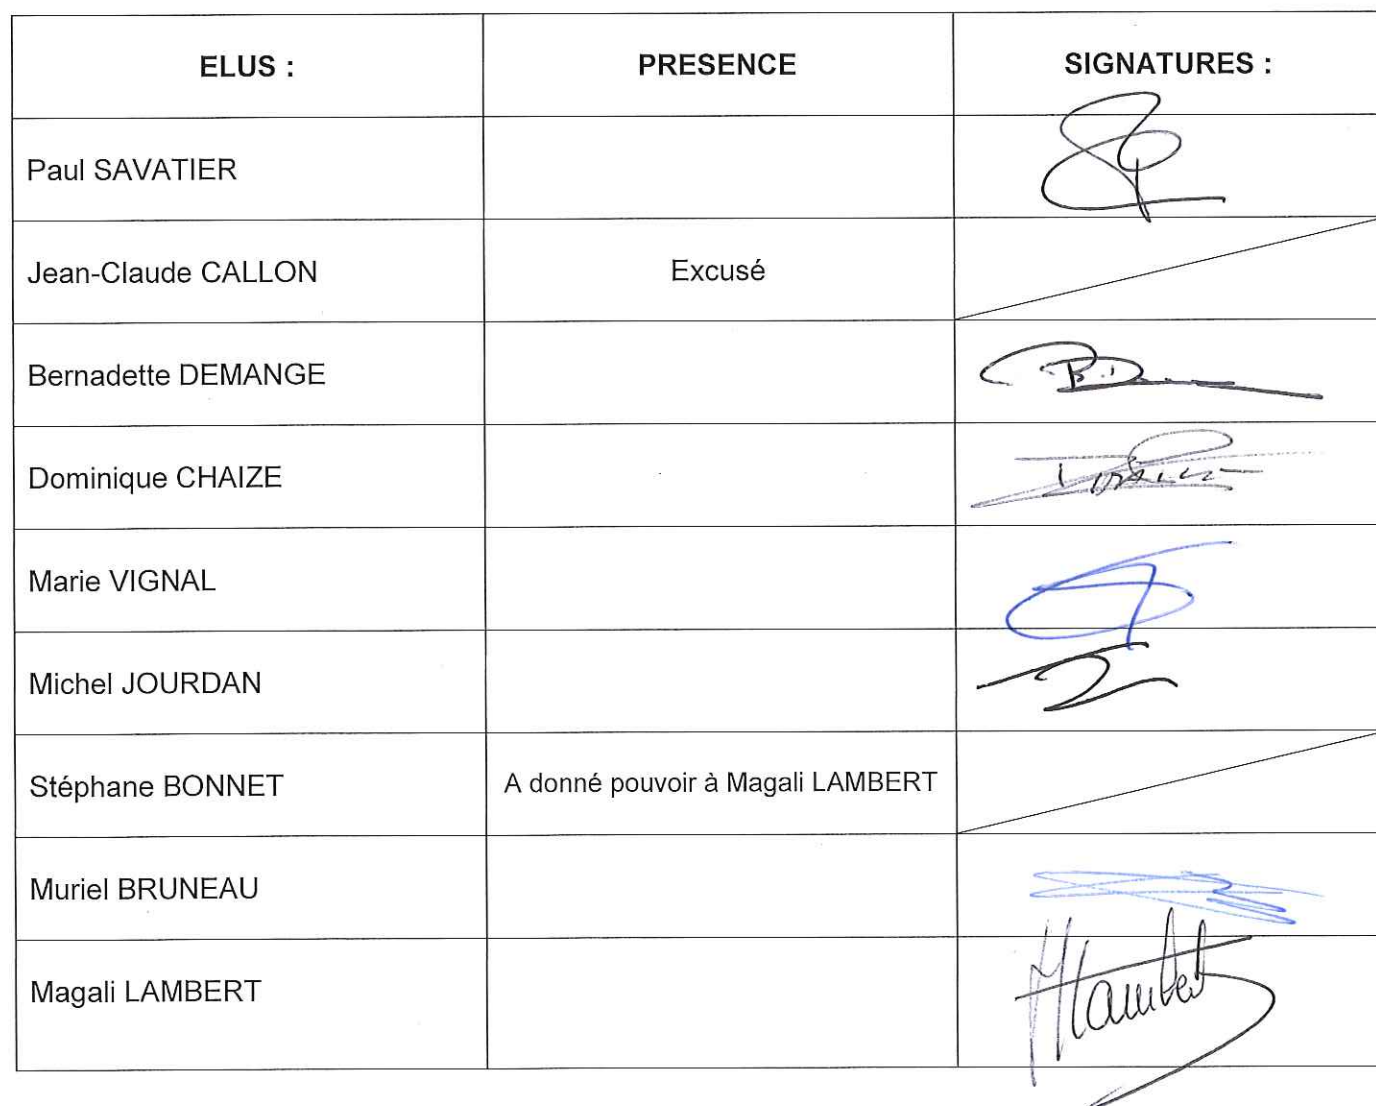 ELUS : PRESENCE SIGNATURES :
Paul SAVATIER
Jean-Claude CALLON Excusé
Bernadette DEMANGE
Dominique CHAIZE
Marie VIGNAL
Michel JOURDAN
Stéphane BONNET A donné pouvoir à Magali LAMBERT
Muriel BRUNEAU
Magali LAMBERT MLambert